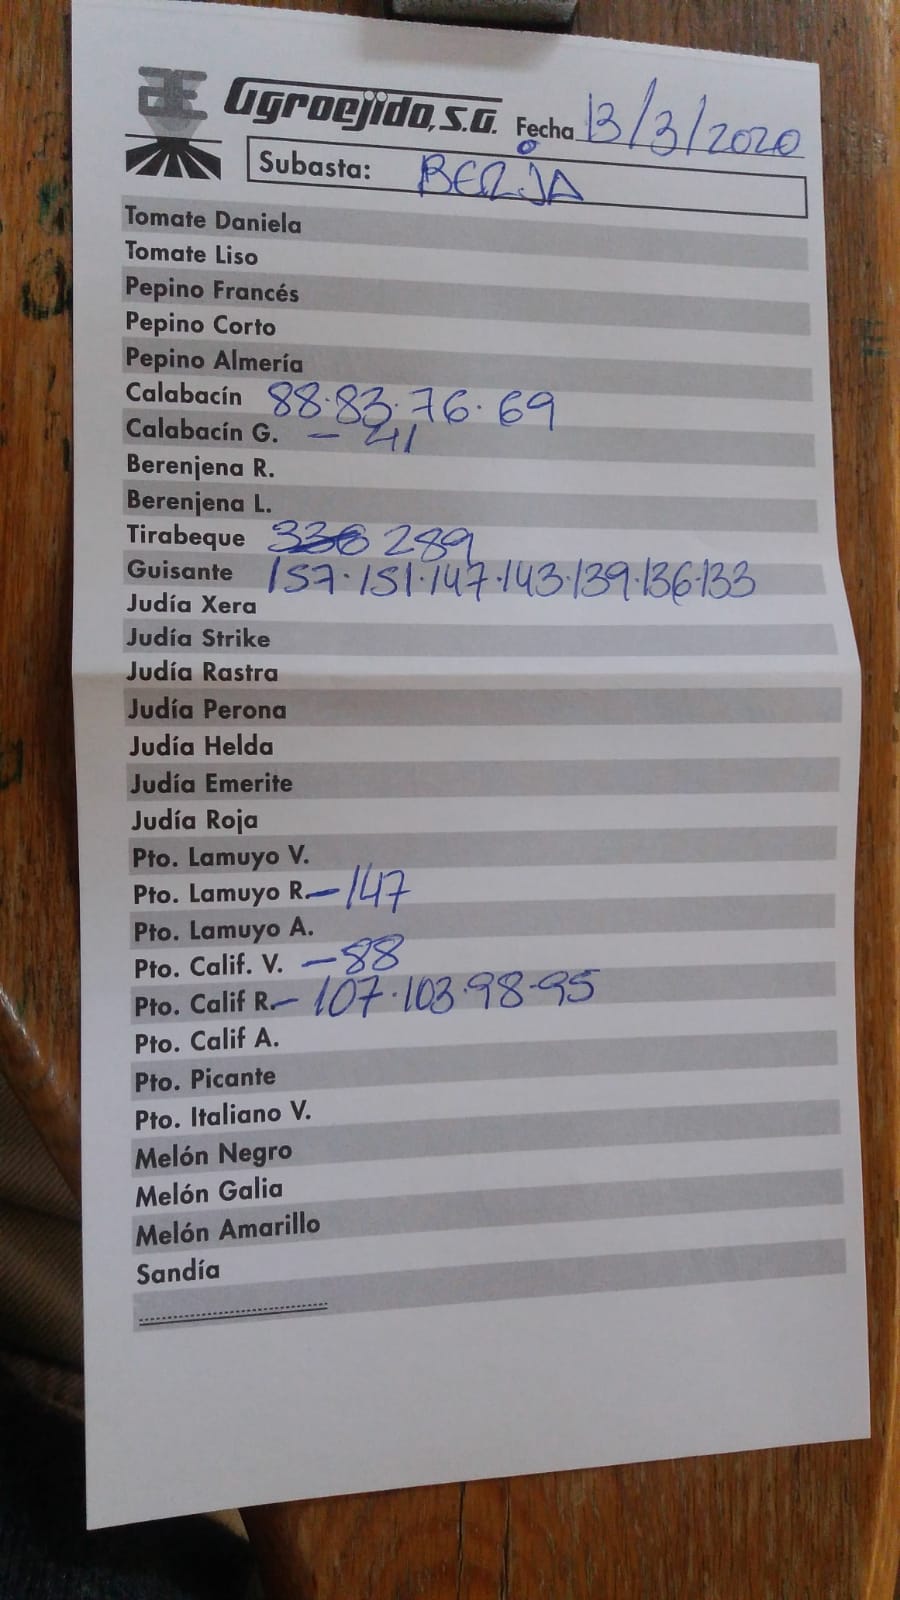 Agroejido, S.A. Fecha 13/3/2020
Subasta: BERJA
Tomate Daniela
Tomate Liso
Pepino Francés
Pepino Corto
Pepino Almería
Calabacín 88·83·76·69
Calabacín G. - 41
Berenjena R.
Berenjena L.
Tirabeque 289
Guisante 157·151·147·143·139·136·133
Judía Xera
Judía Strike
Judía Rastra
Judía Perona
Judía Helda
Judía Emerite
Judía Roja
Pto. Lamuyo V.
Pto. Lamuyo R. - 147
Pto. Lamuyo A.
Pto. Calif. V. - 88
Pto. Calif R. - 107·103·98·95
Pto. Calif A.
Pto. Picante
Pto. Italiano V.
Melón Negro
Melón Galia
Melón Amarillo
Sandía